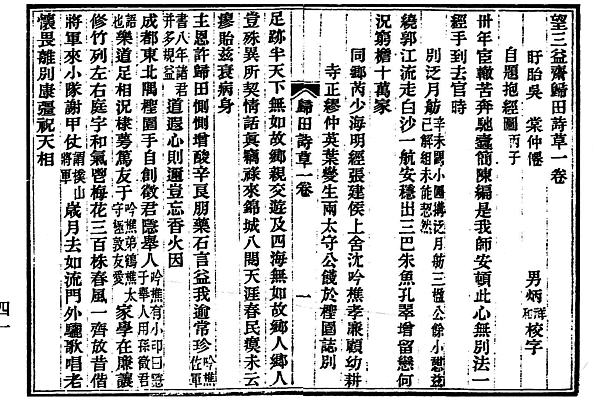 望三益齋歸田詩草一卷
盱眙吳棠仲僊 男炳祥和校字
自題抱經圖丙子
卅年宦轍苦奔馳蠹簡陳編是我師安頓此心無別法一
經手到去官時
別泛月舫
繞郭江流走白沙一航安穩出三巴朱魚孔翠增留戀何
況窮檐十萬家
同鄉芮少海明經張建侯上舍沈吟樵孝廉顧幼耕
寺正繆仲英葉變生兩太守公餞於櫻園誌別
歸田詩草一卷 一
足跡半天下無如故鄉親交遊及四海無如故鄉人鄉人
豈殊異所契情話真竊祿來錦城八閱天涯春民瘼未云
瘳貽茲衰病身
主恩許歸田惻惻增酸辛良朋藥石言益我逾常珍吟樵佐軍
書八年諸君并多規益道遐心則邇豈忘香火因
成都東北隅櫻園手自創徵君隱舉人
樂道足相況棣萼篤友于家學在廉讓
修竹列左右庭宇和氣鬯梅花三百株春風一齊放昔偕
將軍來小隊謝甲仗謂魁山將軍歲月去如流門外驪歌唱老
懷畏離別康彊祝天相
四一